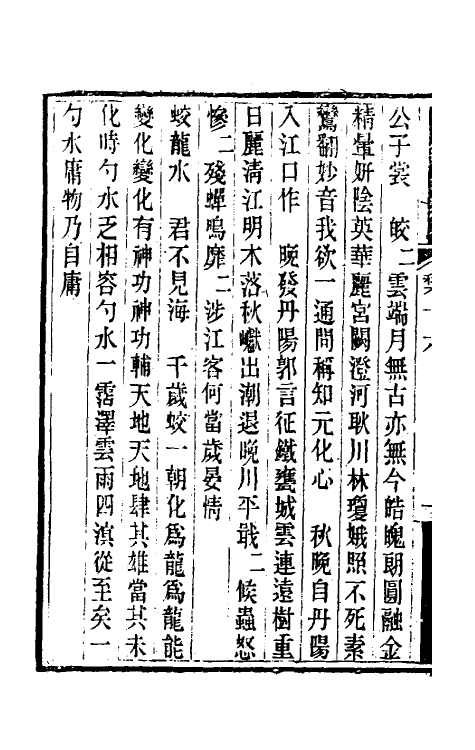 公子裳　皎二雲端月無古亦無今皓魄朗圓融金
精暈妍陰英華麗宮闕澄河耿川林瓊娥照不死素
鸞翻妙音我欲一通問稱知元化心　秋晚自丹陽
入江口作　晚發丹陽郭言征鐵甕城雲連遠樹重
日麗清江明木落秋巘出潮退晚川平戢二候蟲怒
慘二殘蟬鳴靡二涉江客何當歲晏情
蛟龍水　君不見海　千歲蛟一朝化爲龍爲龍能
變化變化有神功神功輔天地天地肆其雄當其未
化時勺水乏相容勺水一霑澤雲雨四滇從至矣一
勺水庸物乃自庸